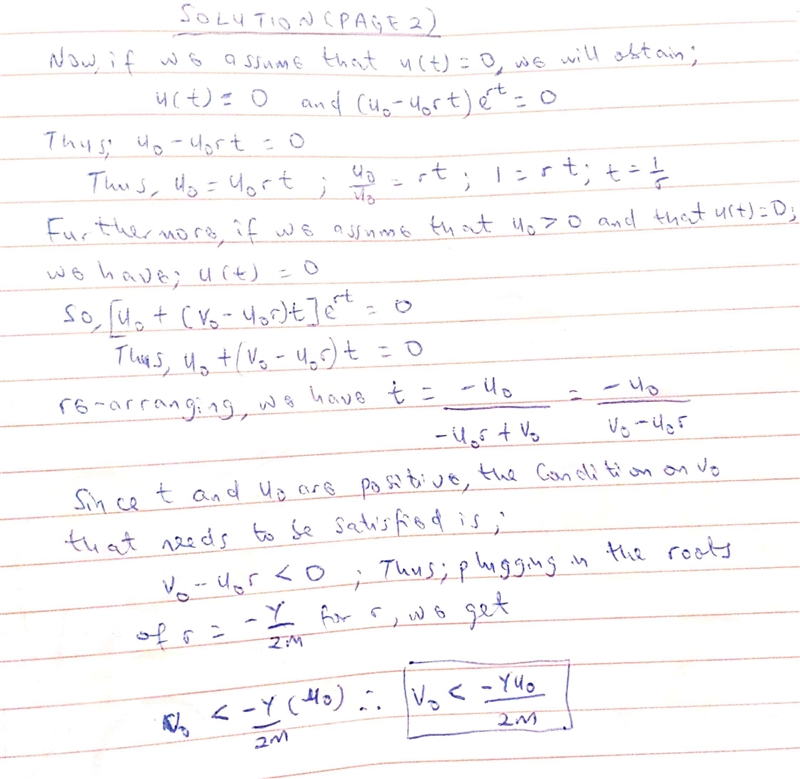 SOLUTION (PAGE 2)
Now, if we assume that u(t) = 0, we will obtain;
u(t) = 0 and (u₀ - u₀rt) eʳᵗ = 0
Thus; u₀ - u₀rt = 0
Thus, u₀ = u₀rt ; u₀/u₀ = rt ; 1 = rt; t = 1/r
Furthermore, if we assume that u₀ > 0 and that u(t) = 0;
we have; u(t) = 0
So, [u₀ + (v₀ - u₀r)t] eʳᵗ = 0
Thus, u₀ + (v₀ - u₀r) t = 0
re-arranging, we have t = -u₀/(-u₀r + v₀) = -u₀/(v₀ - u₀r)
Since t and u₀ are positive, the Condition on v₀
that needs to be satisfied is;
v₀ - u₀r < 0 ; Thus; plugging in the roots
of r = -γ/2m for r, we get
v₀ < -γ/2m (u₀) ∴ v₀ < -γu₀/2m